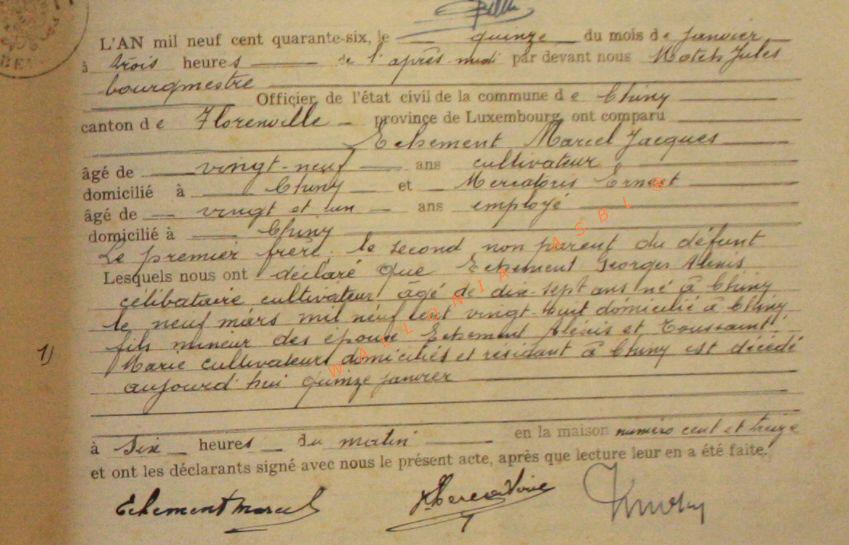 L'AN mil neuf cent quarante-six, le quinze du mois de janvier
à trois heures de l'après-midi par devant nous Jules
bourgmestre
Officier de l'état civil de la commune de Chiny
canton de Florenville province de Luxembourg, ont comparu
Echement Marcel Jacques
âgé de vingt-neuf ans cultivateur
domicilié à Chiny et Mercatoris Ernest
âgé de vingt et un ans employé
domicilié à Chiny
Le premier frère, le second non parent du défunt
Lesquels nous ont déclaré que Echement Georges Alexis
célibataire cultivateur âgé de dix-sept ans né à Chiny
le neuf mars mil neuf cent vingt-huit domicilié à Chiny
fils mineur des époux Echement Alexis et Toussaint
1) Marie cultivateurs domiciliés et résidant à Chiny est décédé
aujourd'hui quinze janvier
à six heures du matin en la maison numéro cent et treize
et ont les déclarants signé avec nous le présent acte, après que lecture leur en a été faite.
Echement Marcel
WALLONIA ASBL